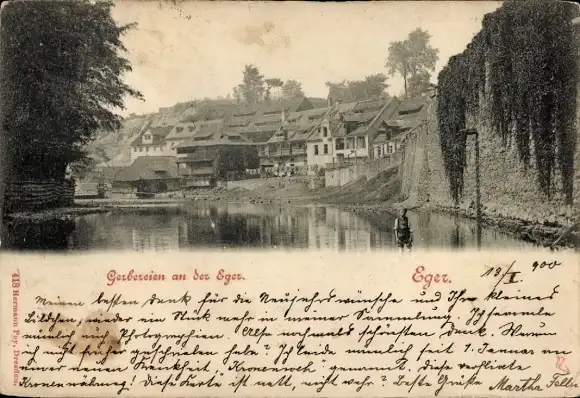 Gerbereien an der Eger.
Eger.
18/I 900
Meinen besten Dank für die Neujahrswünsche und Ihr kleines
Bildchen, wieder ein Stück mehr in meiner Sammlung. Ich sammle
nämlich nur Photographien. Also nochmals schönsten Dank. Warum
ich nicht früher geschrieben habe? Ich leide nämlich seit 1. Januar an
einer neuen Krankheit, "Kronenweh" genannt, diese verflixte
Kronenwährung! diese Karte ist nett, nicht wahr? Beste Grüße Martha
418 Hermann Poy, Dresden